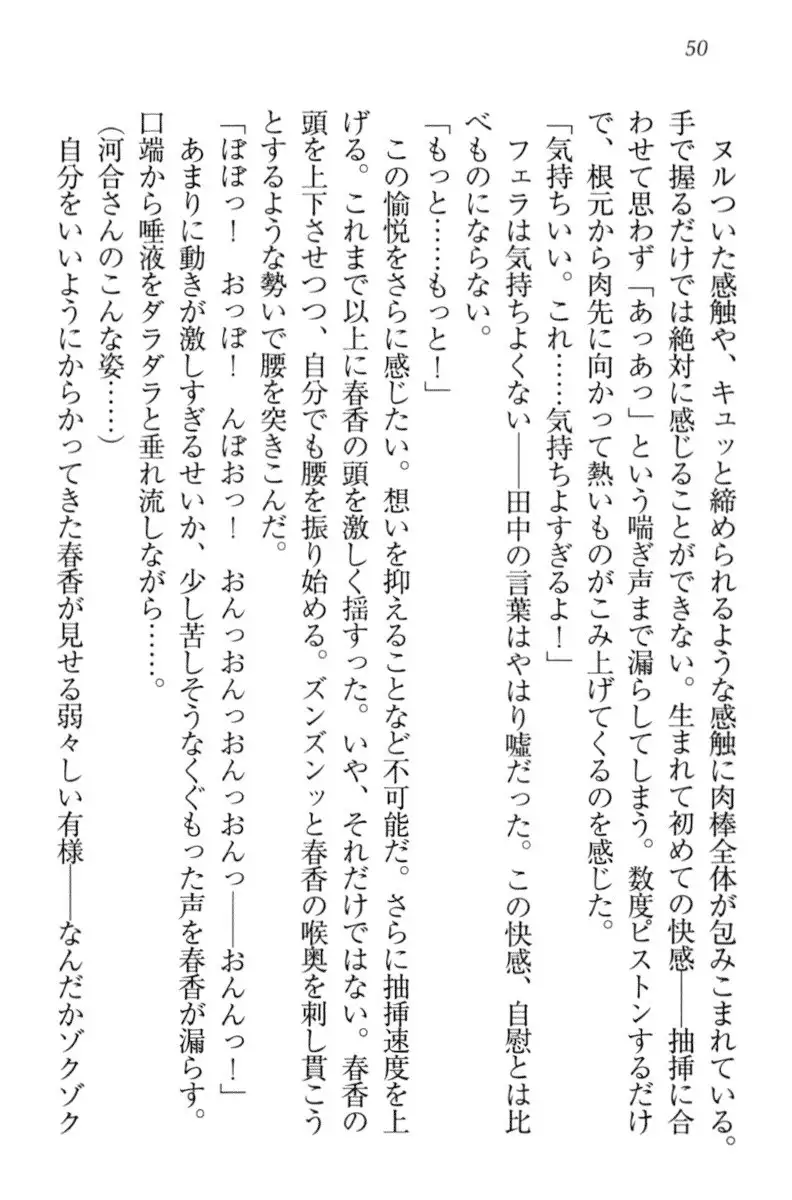 50
ヌルついた感触や、キュッと締められるような感触に肉棒全体が包みこまれている。
手で握るだけでは絶対に感じることができない。生まれて初めての快感――抽挿に合
わせて思わず「あっあっ」という喘ぎ声まで漏らしてしまう。数度ピストンするだけ
で、根元から肉先に向かって熱いものがこみ上げてくるのを感じた。
「気持ちいい。これ……気持ちよすぎるよ！」
フェラは気持ちよくない――田中の言葉はやはり嘘だった。この快感、自慰とは比
べものにならない。
「もっと……もっと！」
この愉悦をさらに感じたい。想いを抑えることなど不可能だ。さらに抽挿速度を上
げる。これまで以上に春香の頭を激しく揺すった。いや、それだけではない。春香の
頭を上下させつつ、自分でも腰を振り始める。ズンズンッと春香の喉奥を刺し貫こう
とするような勢いで腰を突きこんだ。
「ぼぼっ！　おっぽ！　んぼおっ！　おんっおんっおんっおんっ――おんんっ！」
あまりに動きが激しすぎるせいか、少し苦しそうなくぐもった声を春香が漏らす。
口端から唾液をダラダラと垂れ流しながら……。
（河合さんのこんな姿……）
自分をいいようにからかってきた春香が見せる弱々しい有様――なんだかゾクゾク